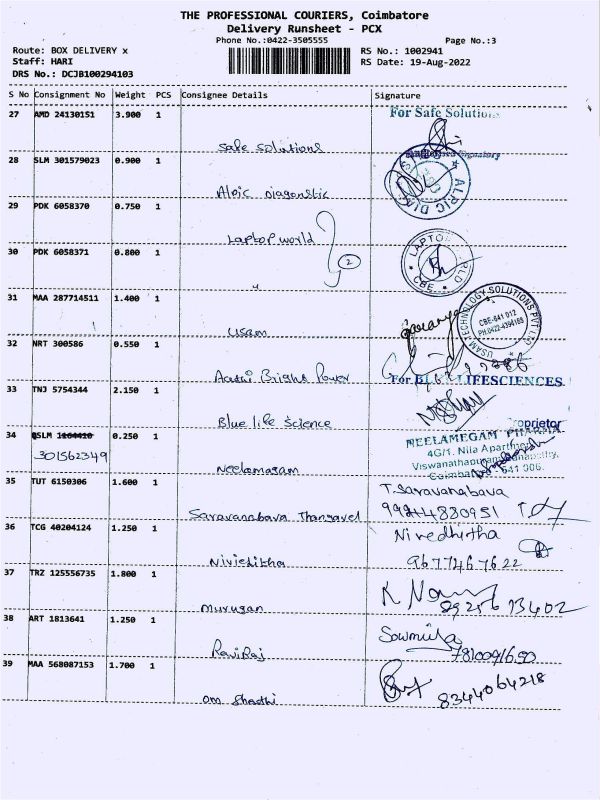 THE PROFESSIONAL COURIERS, Coimbatore
Delivery Runsheet - PCX
Phone No.:0422-3505555 Page No.:3
Route: BOX DELIVERY x RS No.: 1002941
Staff: HARI RS Date: 19-Aug-2022
DRS No.: DCJB100294103
S No Consignment No Weight PCS Consignee Details Signature
27 AMD 24130151 3.900 1 For Safe Solutions
Safe Solutions
28 SLM 301579023 0.900 1
Alpic Diagonstic ALPIC
29 PDK 6058370 0.750 1
Laptop world
30 PDK 6058371 0.800 1 LAPTO
2 CBE
"
31 MAA 287714511 1.400 1
USAM TECHNOLOGY SOLUTIONS PVT LTD
CBE-641 012
Usam
32 NRT 300586 0.550 1
Aadhi Bright Power
33 TNJ 5754344 2.150 1 For LIFESCIENCES
Blue life Science Proprietor
34 SLM 0.250 1 NEELAMEGAM PHARMA
301562349 4G/1, Nila Apartment
Viswanathapuram
Neelamagam 641 006.
35 TUT 6150306 1.600 1 T.Saravanabava
Saravanabava Thangavel
36 TCG 40204124 1.250 1 Nivedhitha
Nivichitha 9677467622
37 TRZ 125556735 1.800 1
Murugan
38 ART 1813641 1.250 1 Sowmiya
Raviraj 7810091650
39 MAA 568087153 1.700 1
Om Shadhi 8344064218